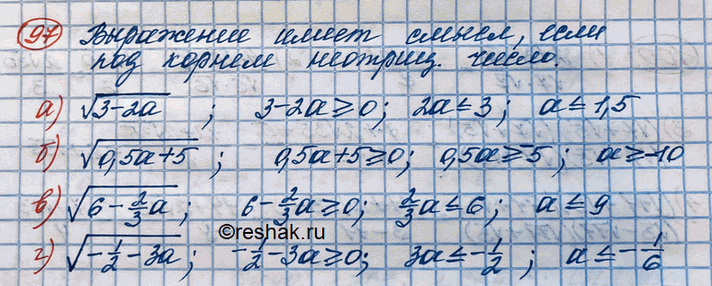 97 Выражение имеет смысл, если
под корнем неотриц. число.
а) √(3-2a) ; 3-2a≥0; 2a≤3; a≤1,5
б) √(0,5a+5) ; 0,5a+5≥0; 0,5a≥-5; a≥-10
в) √(6-2/3a); 6-2/3a≥0; 2/3a≤6; a≤9
©reshak.ru
г) √(-1/2-3a); -1/2-3a≥0; 3a≤-1/2; a≤-1/6